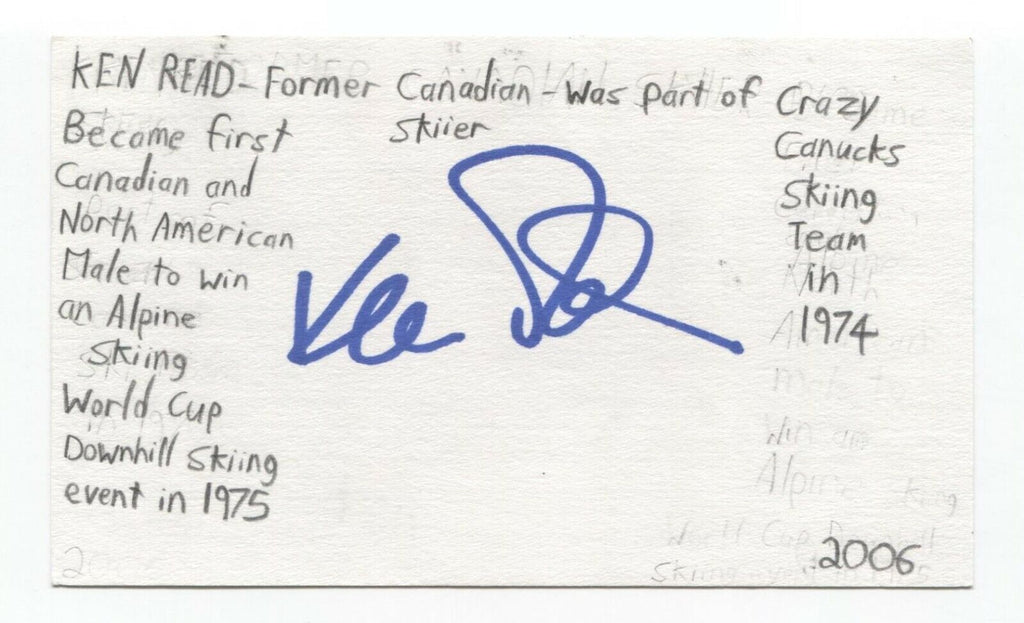 KEN READ - Former Canadian - Was part of Crazy
Skiier
Canucks
Skiing
Team
in
1974
Became first
Canadian and
North American
Male to win
an Alpine
Skiing
World Cup
Downhill Skiing
event in 1975
Ken
2006